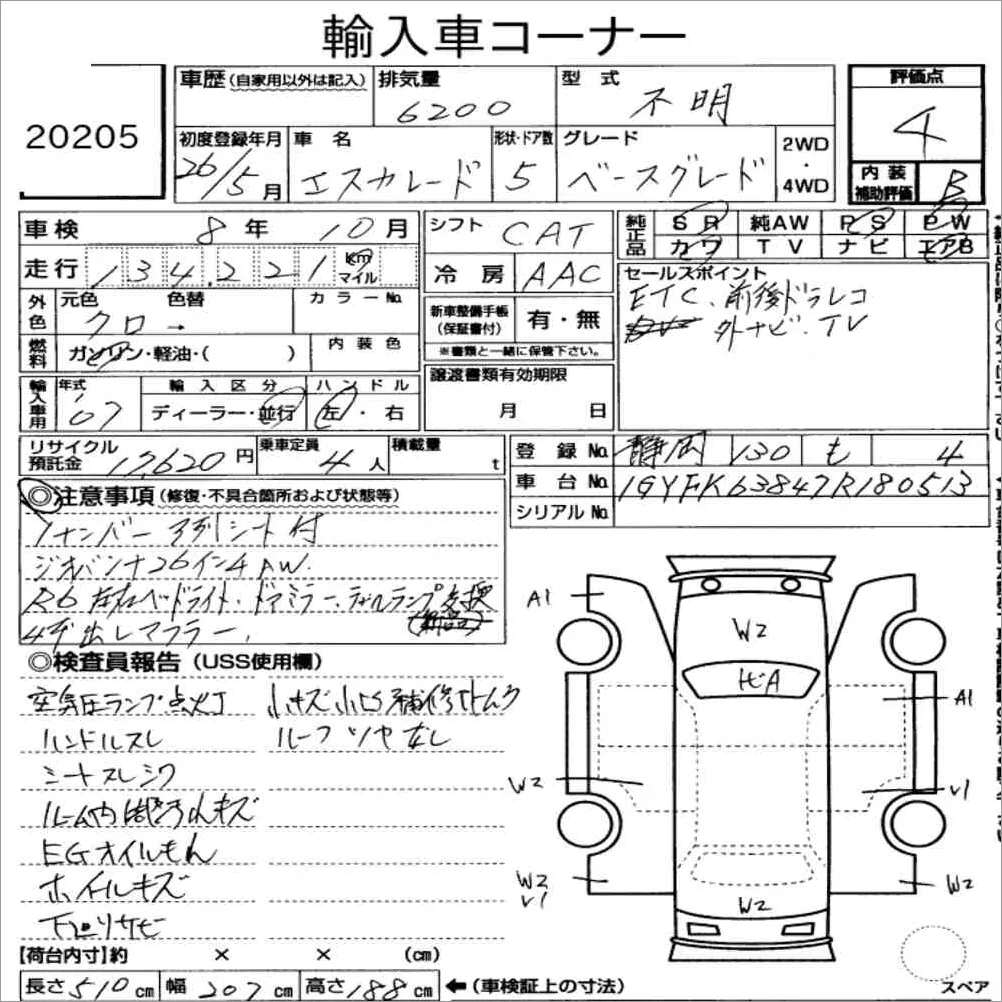 輸入車コーナー
20205
車歴(自家用以外は記入) 排気量 6200 型式 不明
評価点 4
初度登録年月 26/5月 車名 エスカレード 形状・ドア数 5 グレード ベースグレード 2WD・4WD
内装補助評価 B
車検 8年 10月 シフト CAT 純正品 SR 純AW PS PW
カワ TV ナビ エアB
走行 134,221 km マイル 冷房 AAC
セールスポイント
ETC、前後ドラレコ
外ナビ・TV
外色 元色 クロ → 色替 カラーNo.
新車整備手帳(保証書付) 有・無
※書類と一緒に保管下さい。
燃料 ガソリン・軽油・( ) 内装色
輸入車用 年式 '07 輸入区分 ディーラー・並行 ハンドル 左・右
譲渡書類有効期限 月 日
リサイクル預託金 17,620円 乗車定員 4人 積載量 t
登録No. 静岡 130 も 4
車台No. 1GYFK63847R180513
シリアルNo.
◎注意事項(修復・不具合箇所および状態等)
1ナンバー 3列シート付
ジオバンナ26インチAW.
R6 左右ヘッドライト・ドアミラー、テールランプ交換
4本出しマフラー、
◎検査員報告(USS使用欄)
空気圧ランプ点灯 小キズ 小凹 補修跡
ハンドルスレ ルーフ ツヤなし
シートスレシワ
ルーム内 キズ
EGオイルもれ
ホイルキズ
下廻りサビ
A1
W2
ヒA
A1
W2
V1
W2
V1
W2
W2
【荷台内寸】約 × × (cm)
長さ510cm 幅207cm 高さ188cm ←(車検証上の寸法)
スペア